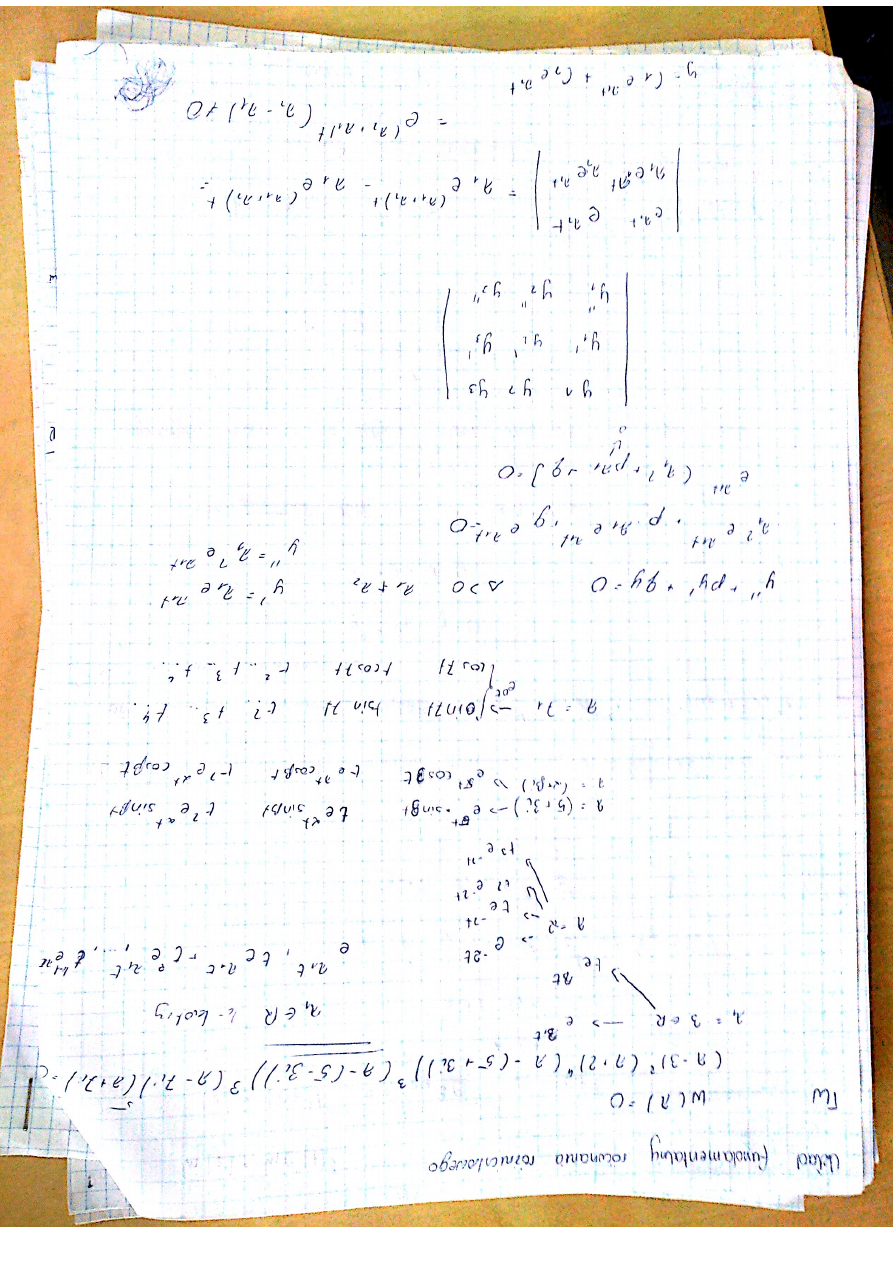 Układ fundamentalny równania różniczkowego
TW W(λ) = 0
(λ-3)² (λ+2)⁴ (λ-(5+3i))³ (λ-(5-3i))³ (λ-7i)⁵ (λ+7i)⁵ = 0
λ₁ = 3 ∈ R → e^{3t} λ₁ ∈ R k-krotny
te^{3t} e^{λ₁t}, te^{λ₁t}, t²e^{λ₁t}, ...,
λ=-2 → e^{-2t}
→ te^{-2t}
t² e^{-2t}
t³ e^{-2t}
λ = (5+3i) → e^{5t} sin3t te^{αt} sinβt t²e^{αt} sinβt
λ = (α+βi) → e^{5t} cos3t te^{αt} cosβt t²e^{αt} cosβt
λ = 7i → e^{0t} sin7t t sin7t t².. t³.. t⁴..
cos7t t cos7t t².. t³.. t⁴..
y'' + py' + qy = 0 Δ > 0 λ₁ ≠ λ₂ y' = λ₁ e^{λ₁t}
y'' = λ₁² e^{λ₁t}
λ₁² e^{λ₁t} + p λ₁ e^{λ₁t} + q e^{λ₁t} = 0
e^{λ₁t} (λ₁² + pλ₁ + q) = 0
0
y₁ y₂ y₃
y₁' y₂' y₃'
y₁'' y₂'' y₃''
| e^{λ₁t} e^{λ₂t} |
| λ₁e^{λ₁t} λ₂e^{λ₂t} | = λ₂ e^{(λ₁+λ₂)t} - λ₁ e^{(λ₁+λ₂)t} =
= e^{(λ₁+λ₂)t} (λ₂ - λ₁) ≠ 0
y = C₁ e^{λ₁t} + C₂ e^{λ₂t}